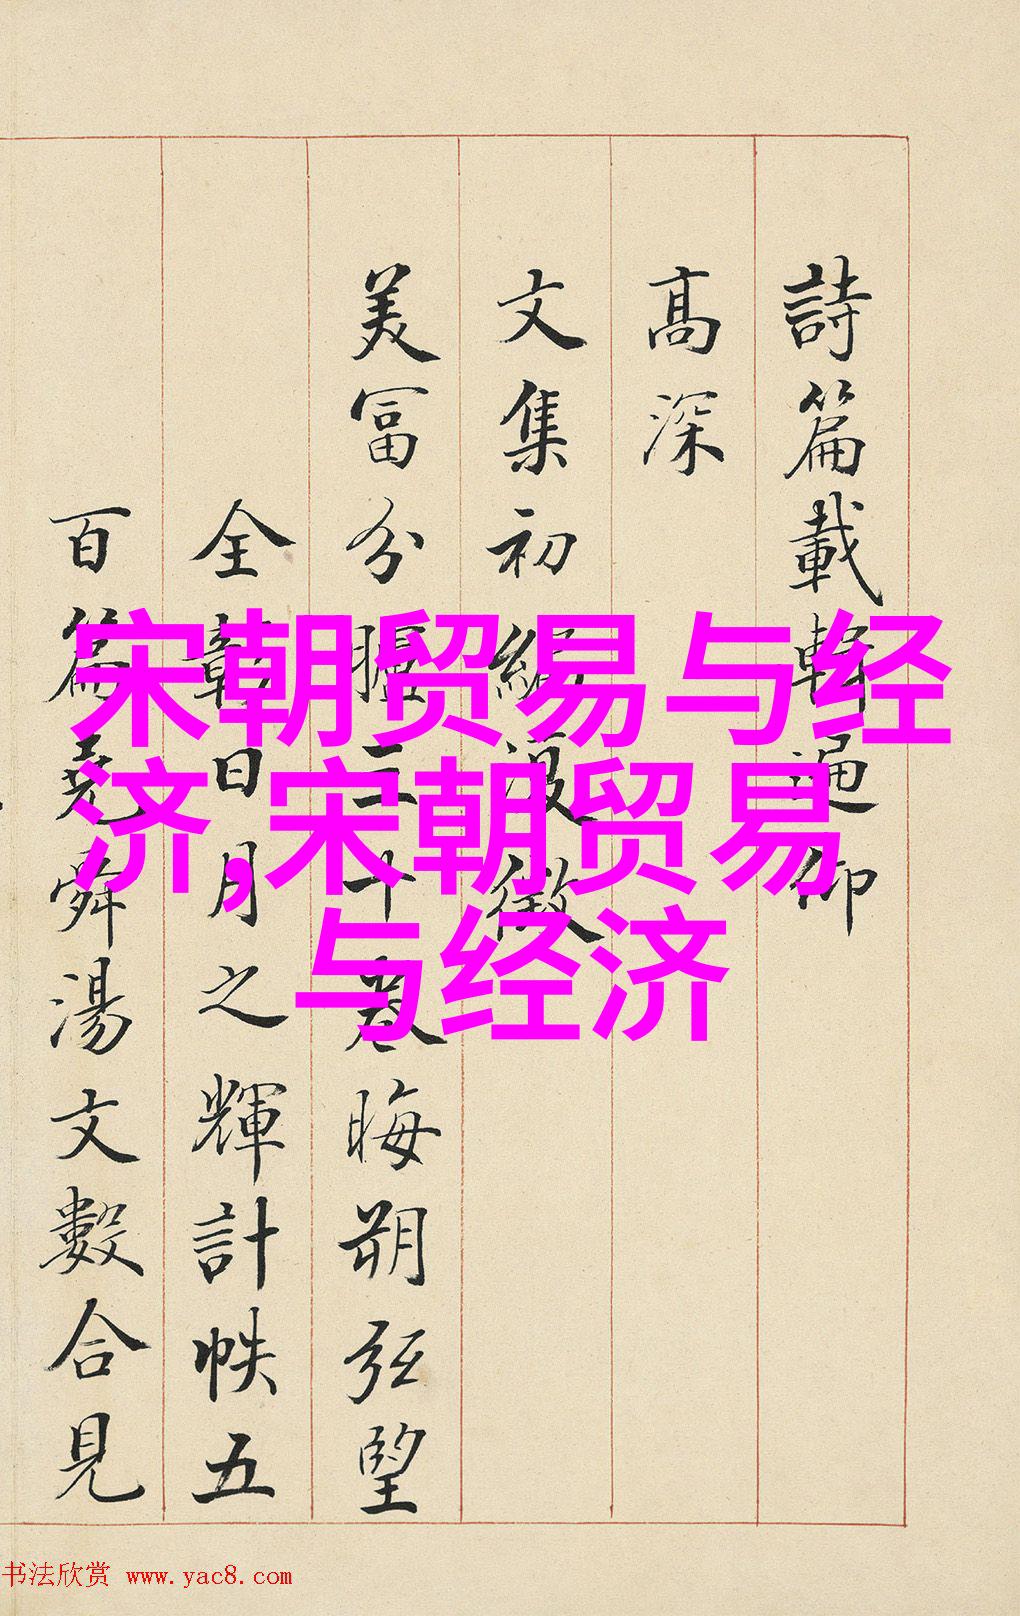 宋朝贸易与经
济,宋朝贸易
与经济
詩篇載轉遍仰
高深
文集初編復徵
美富分軀三十卷晦朔弦望
全彰日月之輝計帙五
百篇堯舜湯文數合見
书法欣赏 www.yac8.com